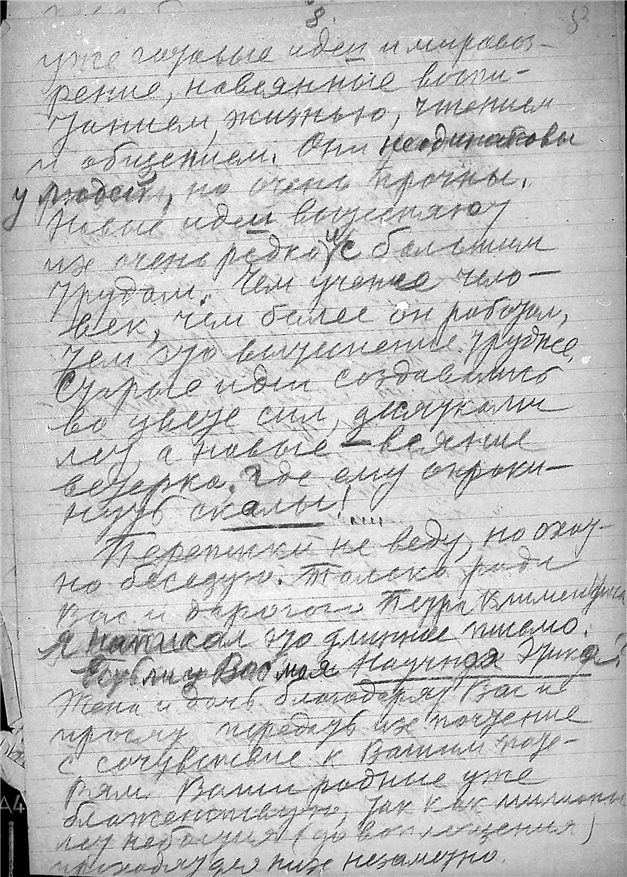 8
уже готовые идеи и мировоз-
рение, навеянные воспи-
танием, жизнью, чтением
и общением. Они неодинаковы
у людей, но очень прочны.
Новые идеи вытесняют
их очень редко и с большим
трудом. Чем ученее чело-
век, чем более он работал,
тем это вытеснение труднее.
Старые идеи создавались
во цвете сил, десятками
лет, а новые – веяние
ветерка. Где ему опроки-
нуть скалы!....
Переписки не веду, но охот-
но беседую. Только ради
Вас и дорогого Петра Климентьича
я написал это длинное письмо.
Вас моя Научная Этика?
Жена и дочь благодарят Вас и
просят передать их почтение
с сочувствие к Вашим поте-
рям. Ваши родные уже
блаженствуют, так как миллионы
лет небытия (до воплощения)
проходят для них незаметно.